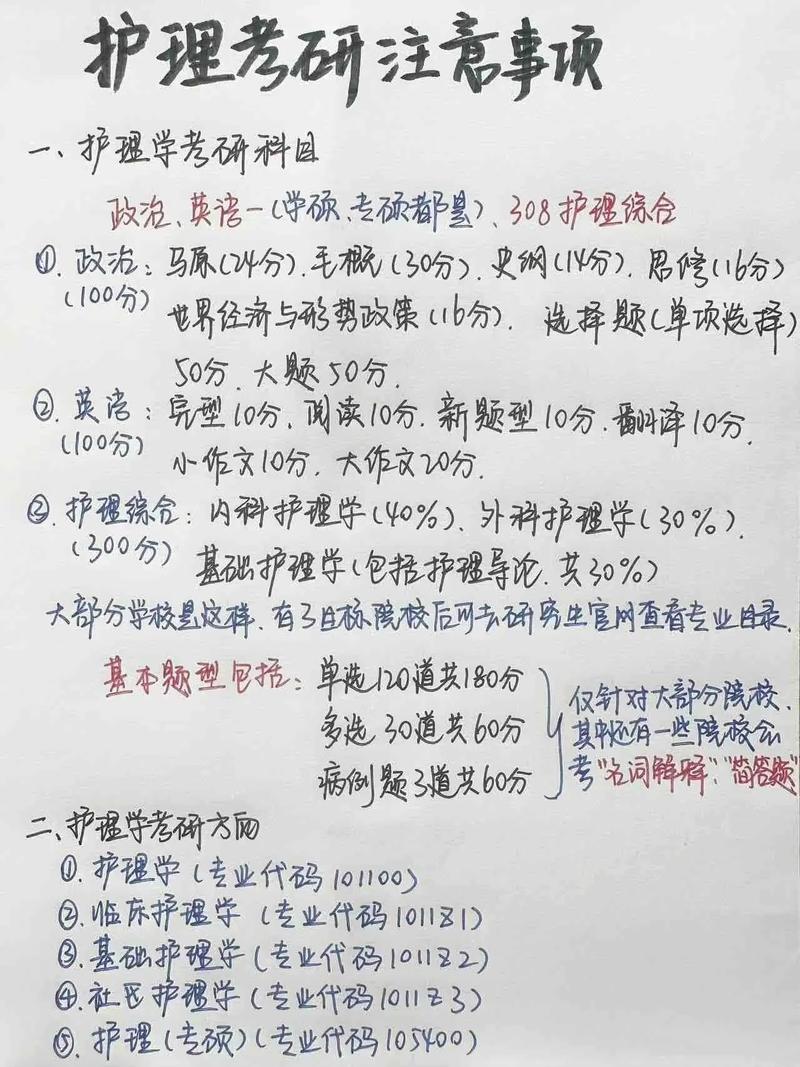 护理考研注意事项
一、护理学考研科目
政治、英语一(学硕、专硕都是)、308护理综合
①. 政治: 马原(24分). 毛概(30分). 史纲(14分). 思修(16分)
(100分) 世界经济与形势政策(16分). 选择题(单项选择)
50分. 大题50分.
②. 英语: 完型10分. 阅读10分. 新题型10分. 翻译10分.
(100分) 小作文10分. 大作文20分.
③. 护理综合: 内科护理学(40%). 外科护理学(30%).
(300分) 基础护理学(包括护理导论. 共30%)
大部分学校是这样. 有了目标院校后可去研究生官网查看专业目录.
基本题型包括: 单选120道共180分
多选 30道共60分
病例题3道共60分
仅针对大部分院校.
其中还有一些院校会
考"名词解释"."简答题"
二、护理学考研方向
①. 护理学 (专业代码101100)
②. 临床护理学 (专业代码1011Z1)
③. 基础护理学(专业代码1011Z2)
④. 社区护理学(专业代码1011Z3)
⑤. 护理(专硕)(专业代码105400)